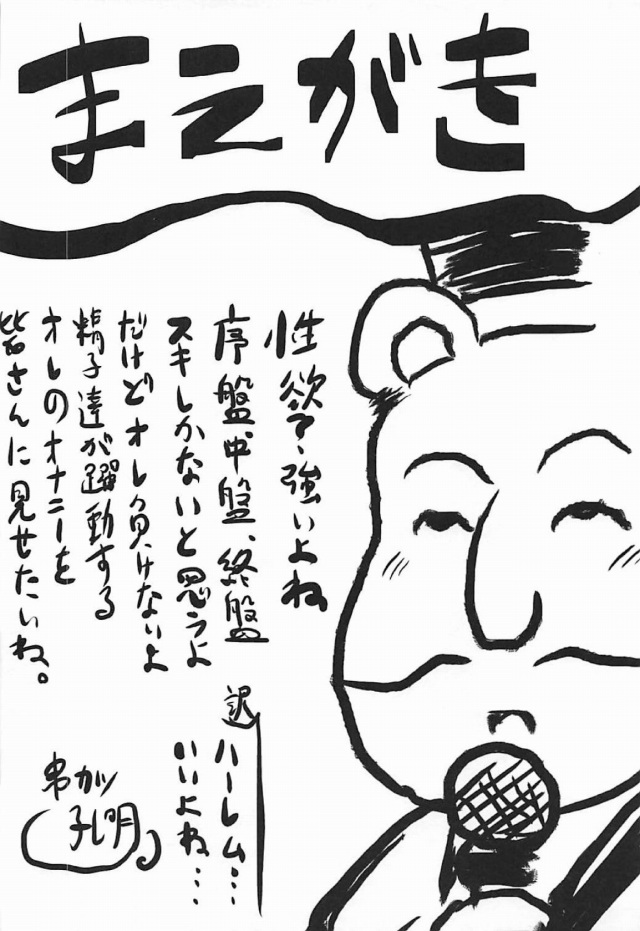 まえがき
性欲、強いよね
序盤、中盤、終盤
スキしかないと思うよ
だけどオレ負けないよ
精子達が躍動する
オレのオナニーを
皆さんに見せたいね。
訳 ハーレム…
いいよね…
串カツ
孔明